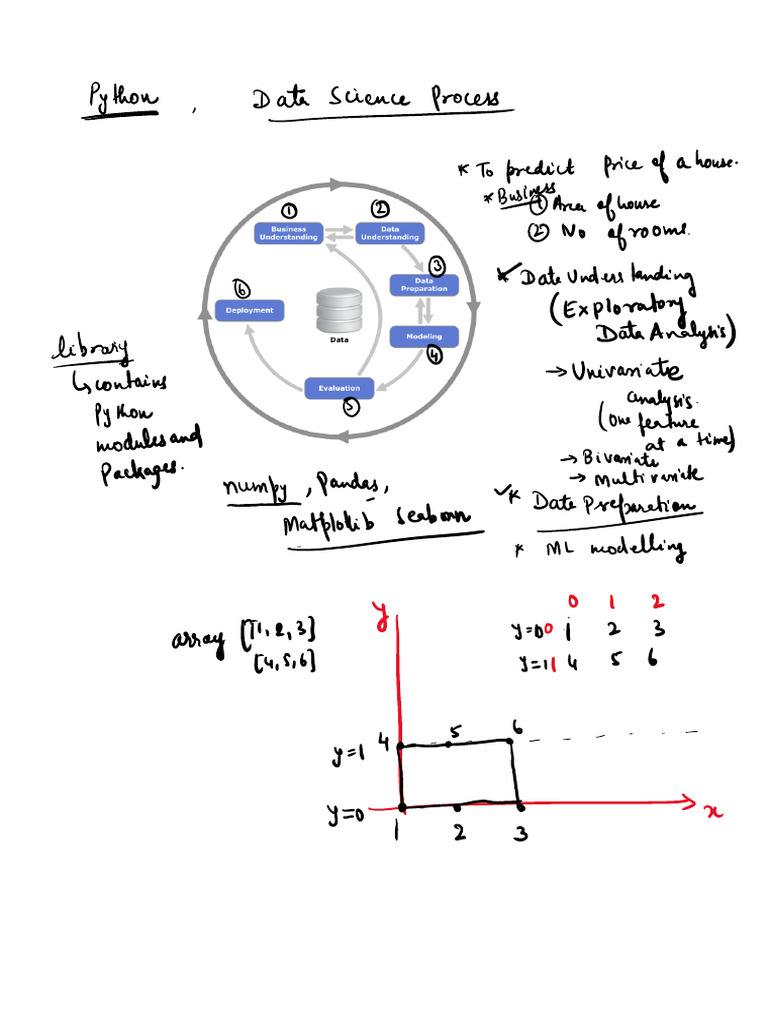 Python , Data Science Process
* To predict Price of a house.
* Business
① Area of house
② No of rooms.
①
②
Business
Understanding
Data
Understanding
③
Data
Preparation
⑥
Deployment
Data
Modeling
④
Evaluation
⑤
* Data Understanding
(Exploratory
Data Analysis)
→ Univariate
analysis.
(one feature
at a time)
→ Bivariate
→ Multivariate
library
↳ contains
Python
modules and
Packages.
numpy, Pandas,
Matplotlib Seaborn
✓* Data Preparation
* ML modelling
array [[1, 2, 3]
[4, 5, 6]
0 1 2
y=0 0 1 2 3
y=1 1 4 5 6
y
y=1 4 5 6
y=0
x
1 2 3